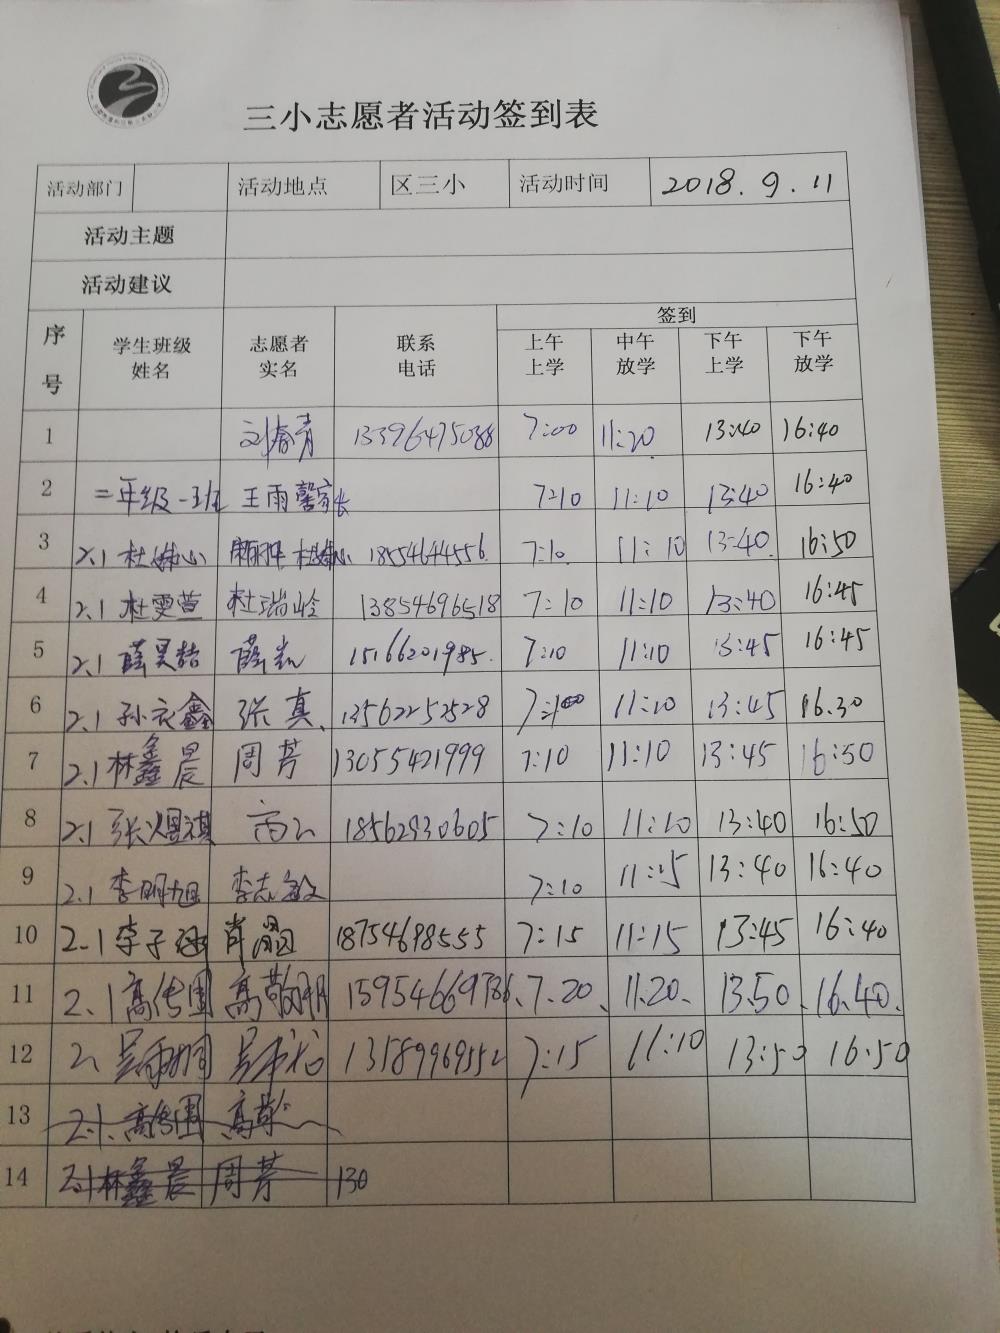 三小志愿者活动签到表
活动部门 活动地点 区三小 活动时间 2018.9.11
活动主题
活动建议
序号 学生班级姓名 志愿者实名 联系电话 签到
上午上学 中午放学 下午上学 下午放学
1 刘春青 13396475088 7:00 11:20 13:40 16:40
2 二年级一班 王雨馨家长 7:10 11:10 13:40 16:40
3 2.1 杜 18554644556 7:10 11:10 13:40 16:50
4 2.1 杜雯萱 杜瑞岭 13854696518 7:10 11:10 13:40 16:45
5 2.1 薛昊喆 薛 15166201985 7:10 11:10 13:45 16:45
6 2.1 孙衣鑫 张真 13562252528 7:10 11:10 13:45 16.30
7 2.1 林鑫晨 周芳 13055421999 7:10 11:10 13:45 16:50
8 2.1 张煜祺 18562930605 7:10 11:10 13:40 16:50
9 2.1 李明旭 李志敏 7:10 11:15 13:40 16:40
10 2-1 李子 肖 18754698555 7:15 11:15 13:45 16:40
11 2.1 高传国 高敬明 15954669786 7.20 11.20 13.50 16.40
12 2 吴雨桐 吴 13589969552 7:15 11:10 13:50 16:50
13 2.1 高传国 高
14 2.1 林鑫晨 周芳 130